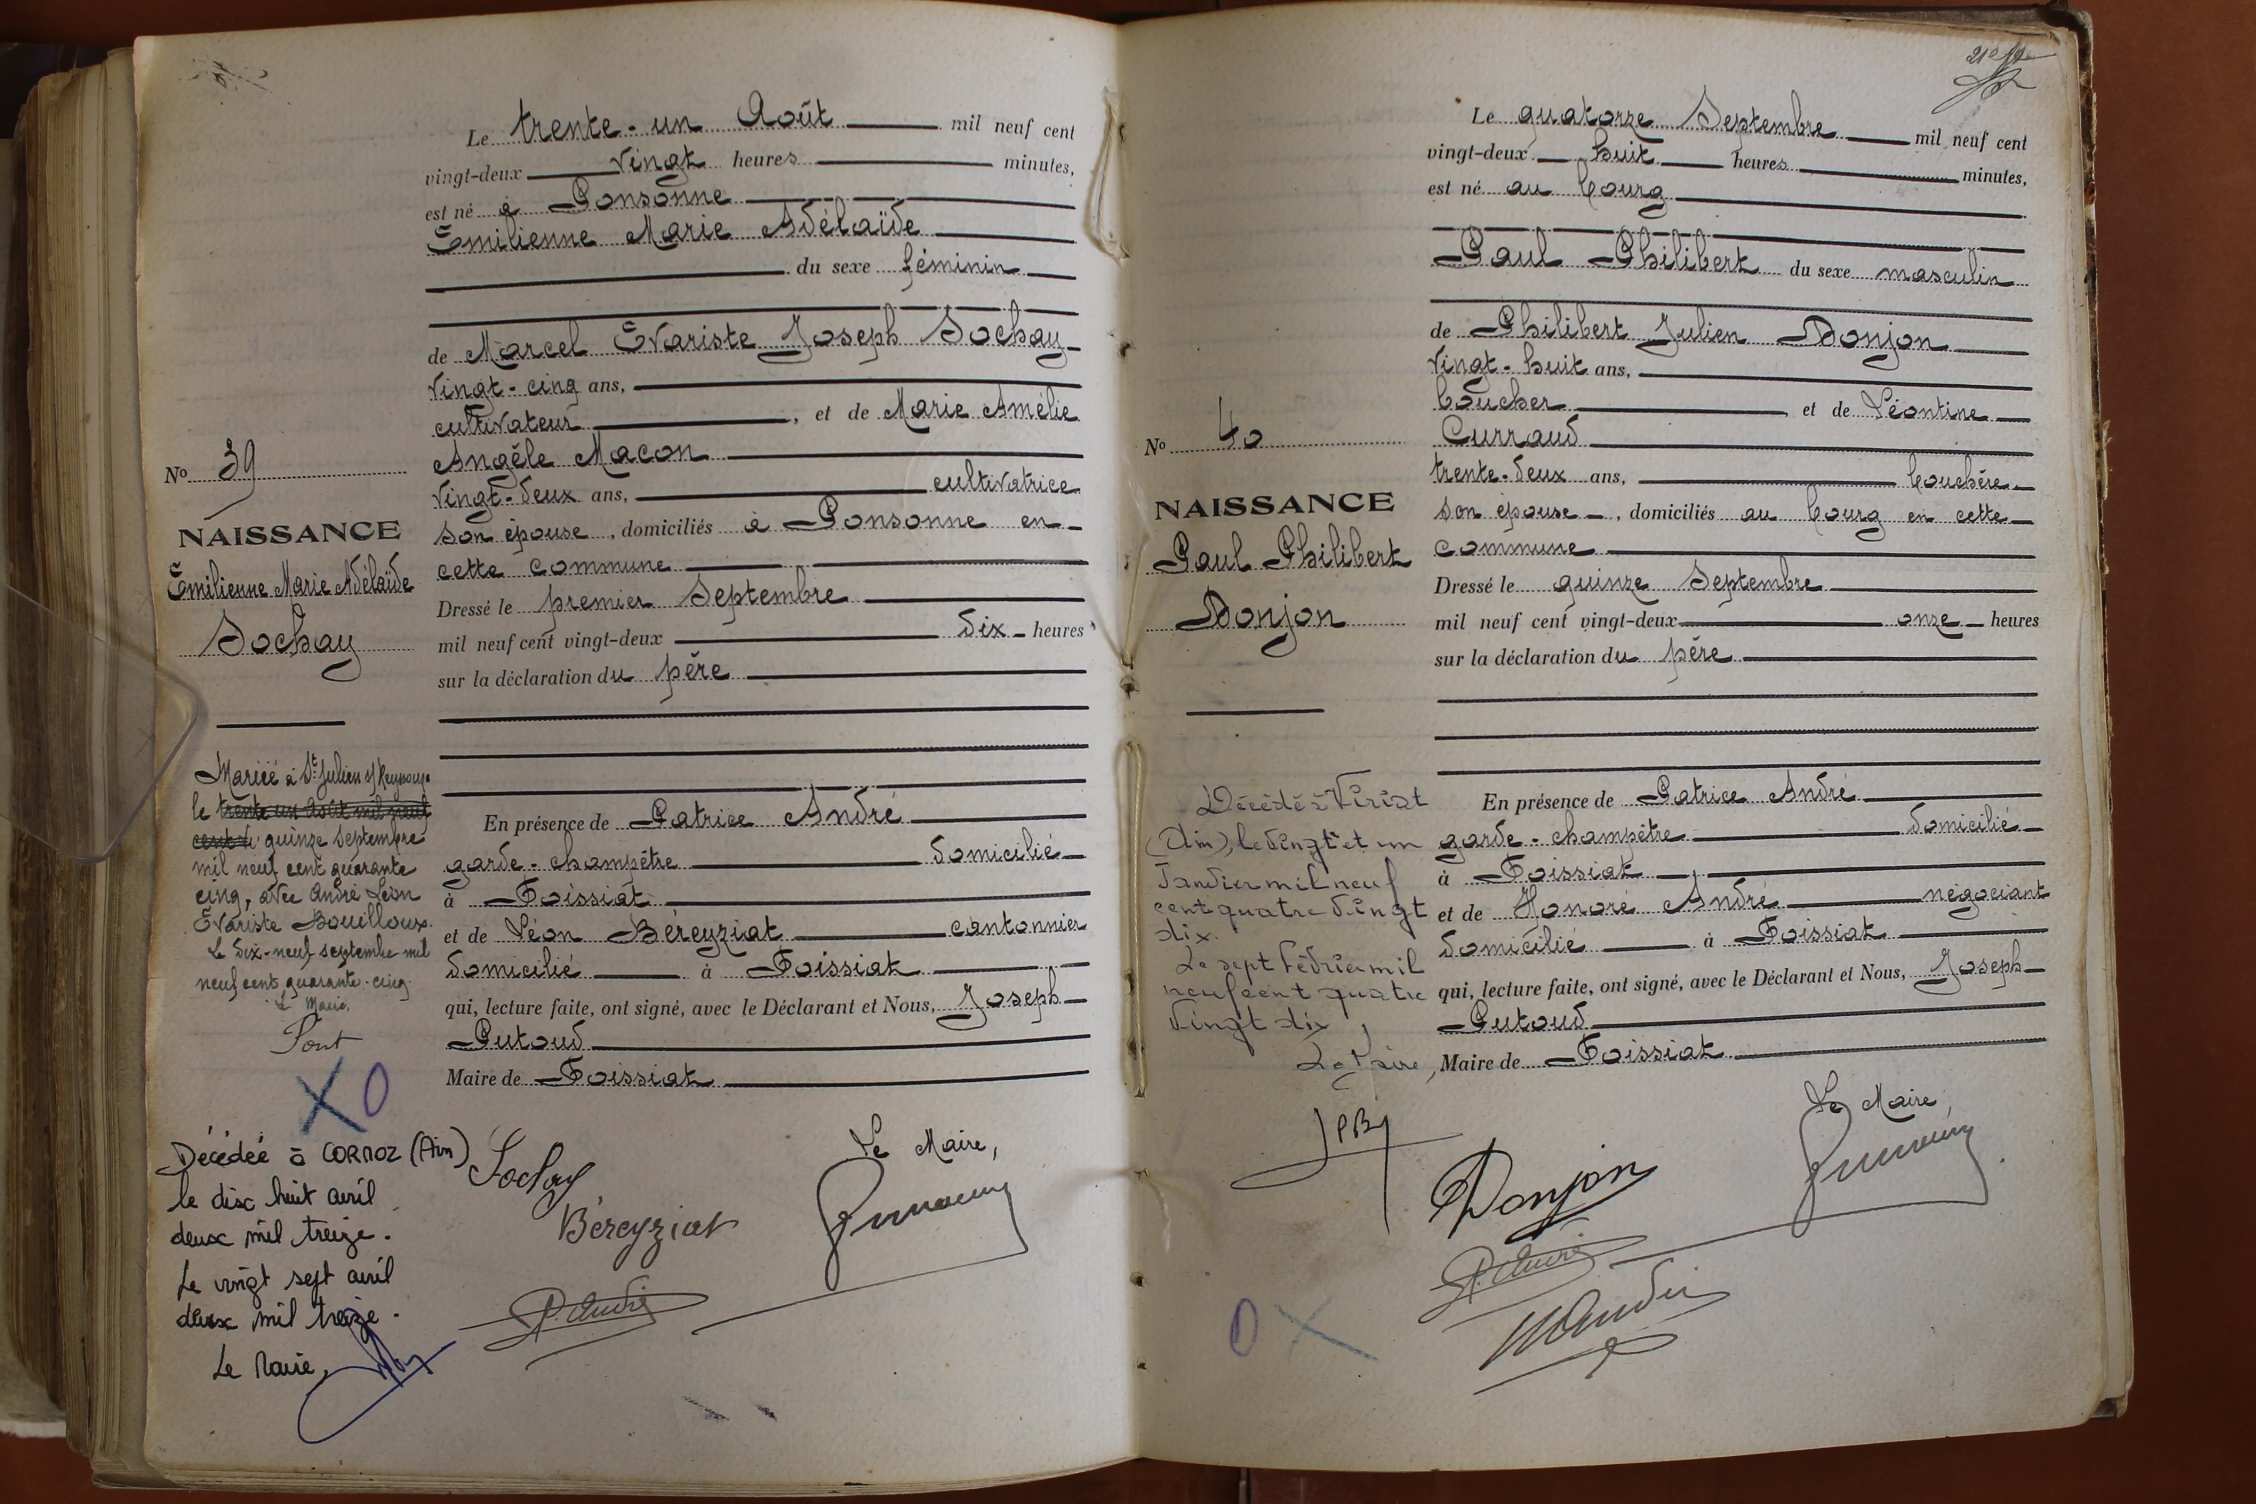 Le trente-un Août mil neuf cent
vingt-deux vingt heures minutes,
est né à Ponsonne
Emilienne Marie Adélaïde
du sexe féminin
de Marcel Evariste Joseph Sochay
vingt-cinq ans,
cultivateur, et de Marie Amélie
Angèle Macon
vingt-deux ans, cultivatrice
son épouse, domiciliés à Ponsonne en
cette commune
Dressé le premier Septembre
mil neuf cent vingt-deux dix heures
sur la déclaration du père
En présence de Patrice André
garde-champêtre domicilié
à Foissiat
et de Léon Béreyziat cantonnier
domicilié à Foissiat
qui, lecture faite, ont signé, avec le Déclarant et Nous, Joseph
Putoud
Maire de Foissiat
Le Maire,
Sochay
Béreyziat
P. André
No 39
NAISSANCE
Emilienne Marie Adélaïde
Sochay
Mariée à St Julien s/ Reyssouze
le trente un août mil neuf
cent quinze septembre
mil neuf cent quarante
cinq, avec André Léon
Evariste Bouilloux.
Le dix-neuf septembre mil
neuf cent quarante-cinq.
Le Maire,
X O
Décédée à CORMOZ (Ain)
le dix huit avril
deux mil treize.
Le vingt sept avril
deux mil treize.
Le Maire,
Le quatorze Septembre mil neuf cent
vingt-deux huit heures minutes,
est né au bourg
Paul Philibert du sexe masculin
de Philibert Julien Donjon
vingt-huit ans,
boucher, et de Léontine
Curraud
trente-deux ans, bouchère
son épouse, domiciliés au bourg en cette
commune
Dressé le quinze Septembre
mil neuf cent vingt-deux onze heures
sur la déclaration du père
En présence de Patrice André
garde-champêtre domicilié
à Foissiat
et de Honoré André négociant
domicilié à Foissiat
qui, lecture faite, ont signé, avec le Déclarant et Nous, Joseph
Putoud
Maire de Foissiat
Le Maire,
Donjon
P. André
H André
No 40
NAISSANCE
Paul Philibert
Donjon
Décédé à Viriat
(Ain), le vingt et un
Janvier mil neuf
cent quatre vingt
dix.
Le sept Février mil
neuf cent quatre
vingt dix,
Le Maire,
O X